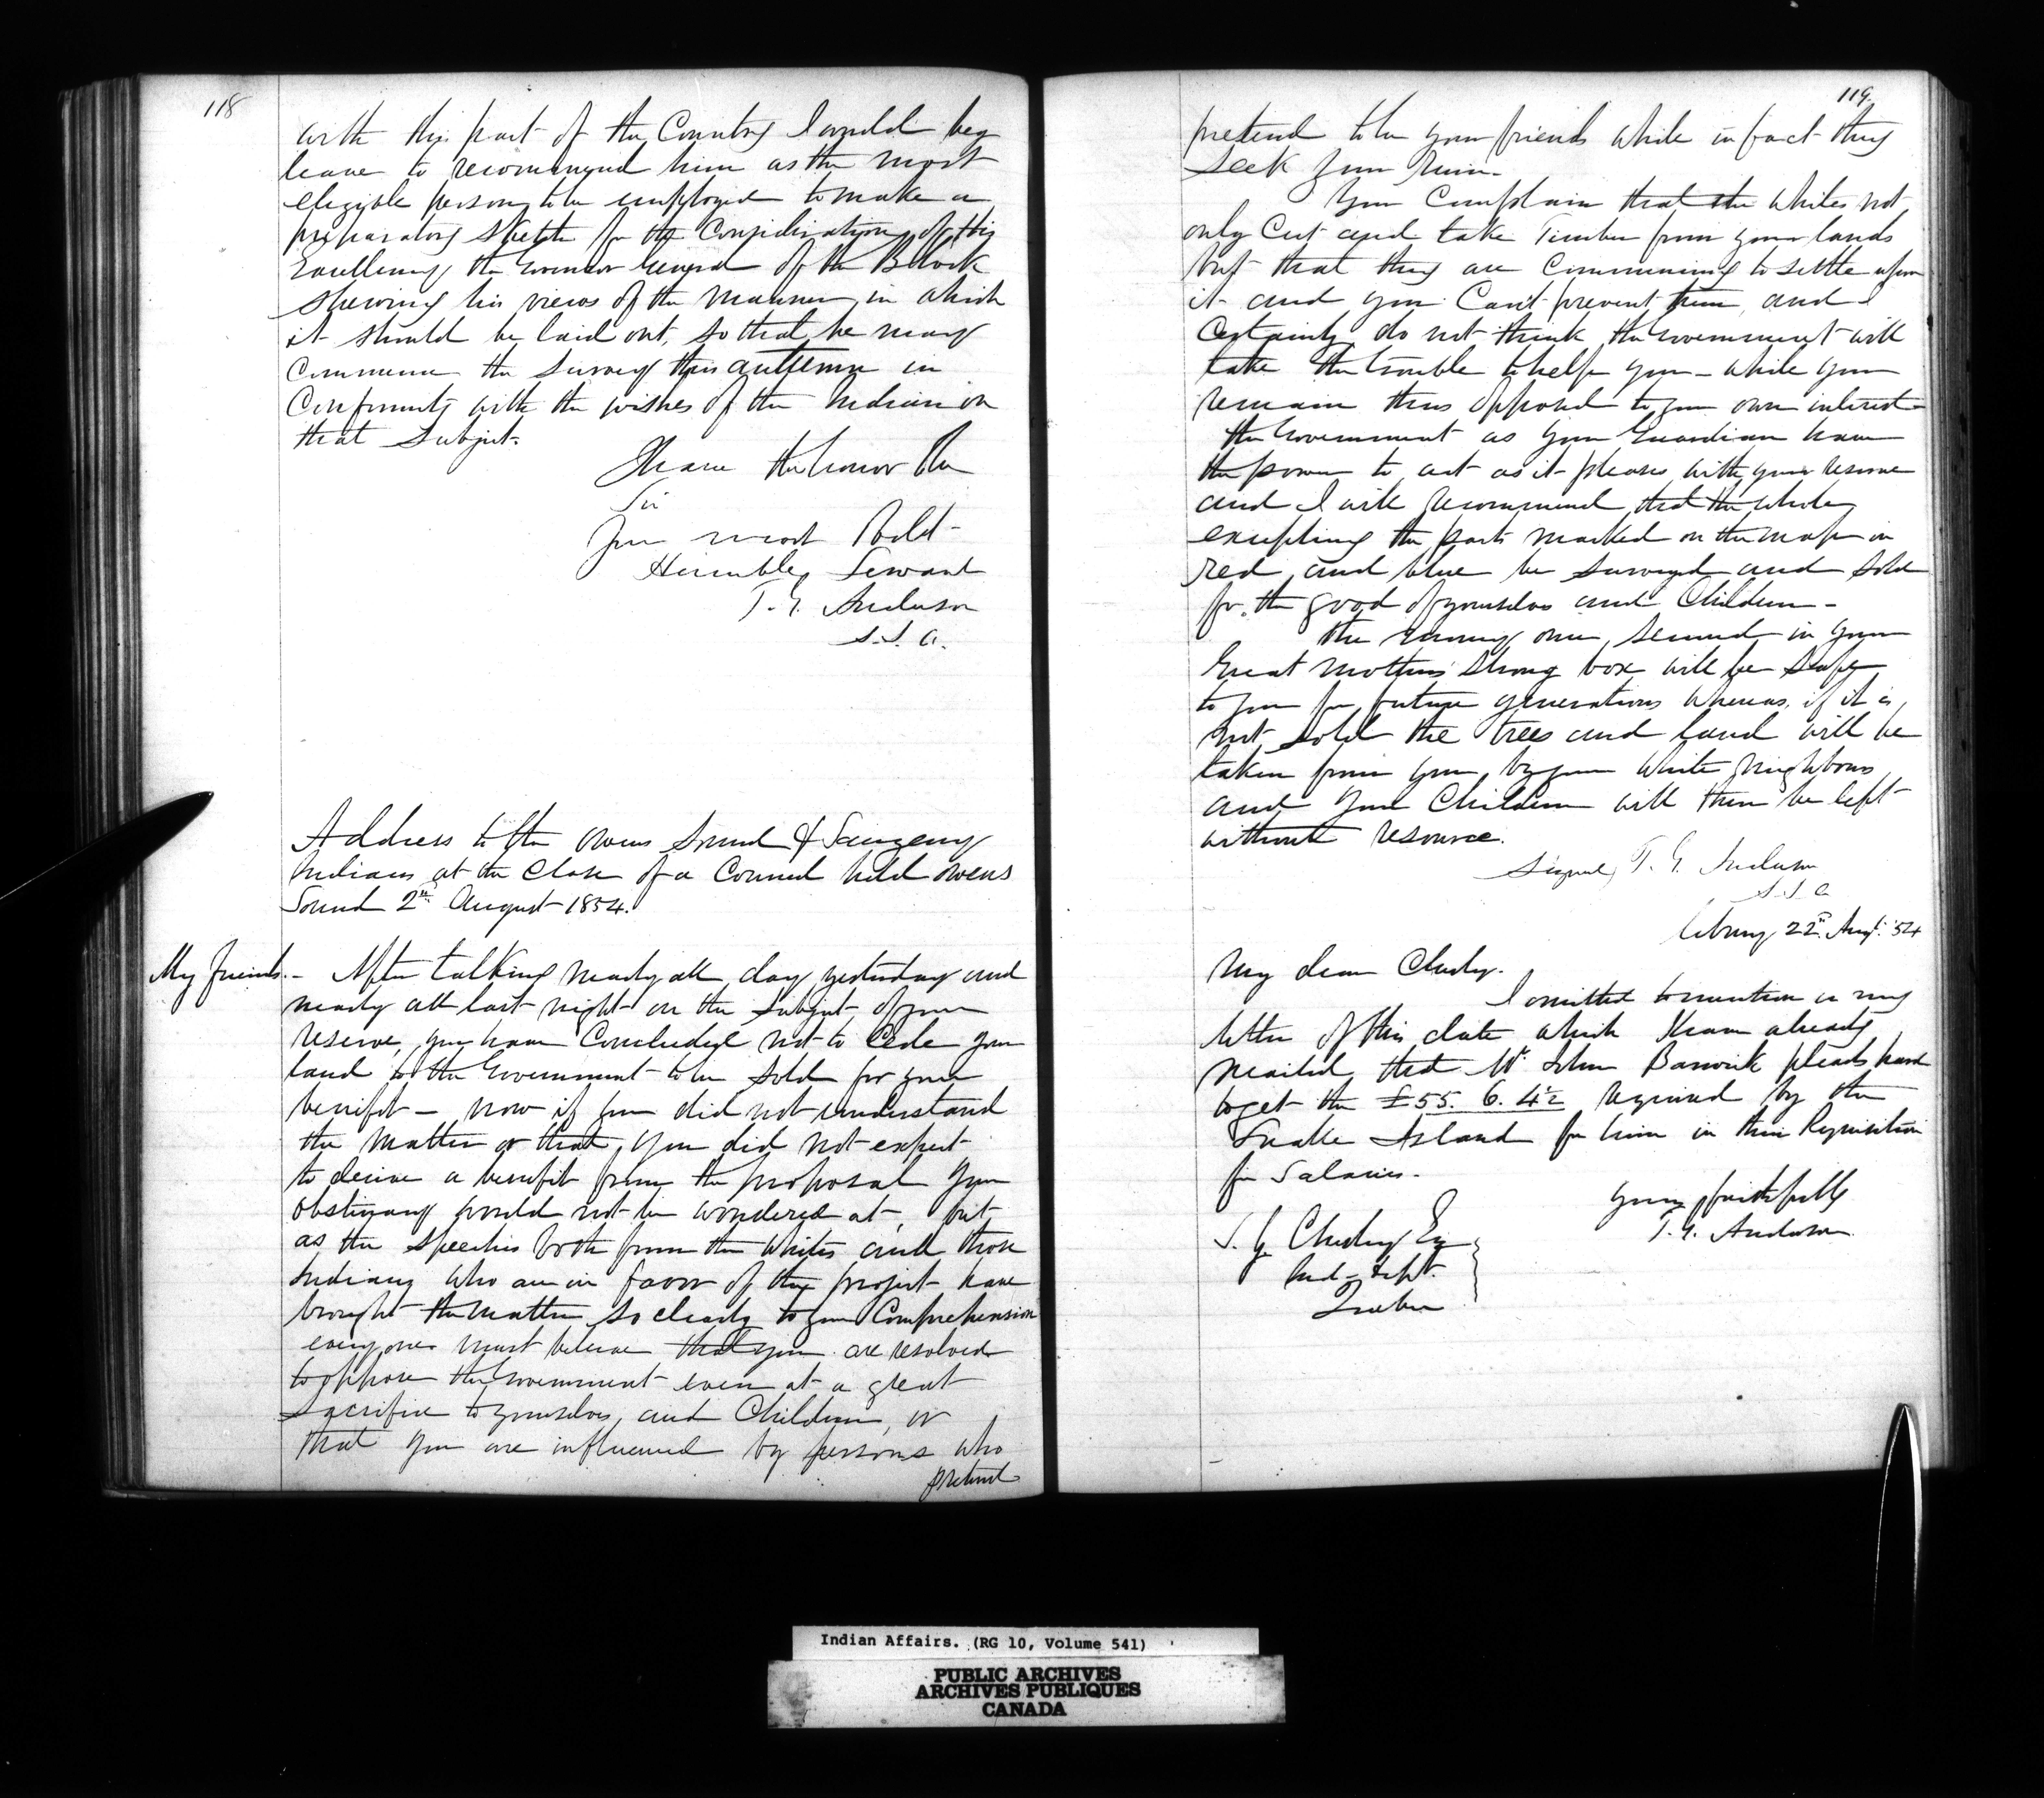 118
with this part of the Country I would beg
leave to recommend him as the most
eligible person to be employed to make a
preparatory Sketch for the Consideration of His
Excellency the Governor General of the Block
shewing his views of the manner in which
it should be laid out, so that he may
commence the survey this autumn in
Conformity with the wishes of the Indians on
that Subject.
I have the honor to be
Sir
Your most Obdt
Humble Servant
T. G. Anderson
S.I.A.
Address to the Owens Sound & Saugeeng
Indians at the Close of a Council held Owens
Sound 2nd August 1854.
My friends. - After talking nearly all day yesterday and
nearly all last night on the subject of your
reserve, you have Concluded not to Cede your
land to the Government to be sold for your
benifit - now if you did not understand
the matter or that you did not expect
to derive a benefit from the proposal your
obstinacy would not be wondered at, but
as the speeches both from the Whites and those
Indians who are in favor of the project have
brought the matter so clearly to your Comprehension
every one must believe that you are resolved
to oppose the Government even at a great
sacrifice to yourselves and Children, or
that you are influenced by persons who
pretend
119.
pretend to be your friends while in fact they
seek your ruin.
You Complain that the whites not
only Cut and take Timber from your lands
but that they are Commencing to settle upon
it and you Can't prevent them, and I
Certainly do not think the Government will
take the trouble to help you - while you
remain thus opposed to your own interest
the Government as your Guardian have
the power to act as it pleases with your reserve
and I will recommend that the whole
excepting the parts marked on the map in
red and blue be surveyed and sold
for the good of yourselves and Children -
The money once secured in your
Great Mothers Strong box will be safe
to you for future generations whereas, if it is
not sold the trees and land will be
taken from you by your white neighbours
and your Children will then be left
without resource.
Signed, T. G. Anderson
S.I.A
Cobourg 22nd Augt. '54
My dear Chesley.
I omitted to mention in my
letter of this date which I have already
mailed that Mr. John Barwick pleads hard
to get the £55. 6. 4½ required by the
Snake Island for him in their Requisition
for Salaries.
Yours faithfully
T. G. Anderson
S. Y. Chesley Esq
Ind - Dept.
Quebec
Indian Affairs. (RG 10, Volume 541)
PUBLIC ARCHIVES
ARCHIVES PUBLIQUES
CANADA